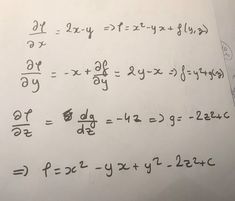 ∂φ/∂x = 2x-y ⇒ φ = x²-yx + f(y,z)
∂φ/∂y = -x + ∂f/∂y = 2y-x ⇒ f = y²+g(z)
∂φ/∂z = dg/dz = -4z ⇒ g = -2z²+c
⇒ φ = x² - yx + y² - 2z²+c